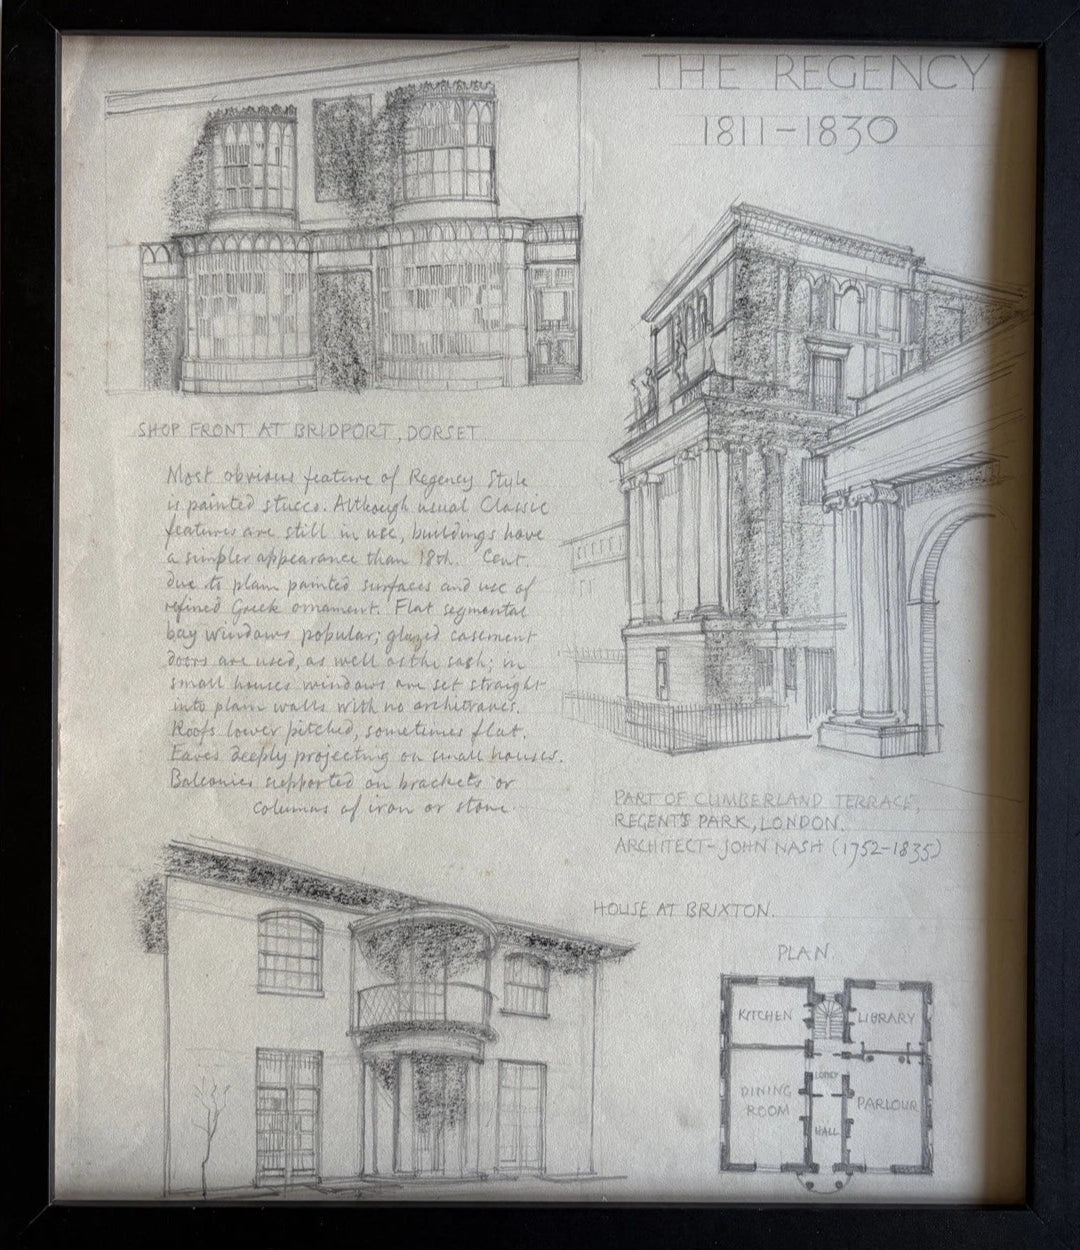 THE REGENCY
1811-1830
SHOP FRONT AT BRIDPORT, DORSET.
Most obvious feature of Regency Style
is painted stucco. Although usual Classic
features are still in use, buildings have
a simpler appearance than 18th. Cent.
due to plain painted surfaces and use of
refined Greek ornament. Flat segmental
bay windows popular; glazed casement
doors are used, as well as the sash; in
small houses windows are set straight
into plain walls with no architraves.
Roofs lower pitched, sometimes flat.
Eaves deeply projecting on small houses.
Balconies supported on brackets or
columns of iron or stone.
PART OF CUMBERLAND TERRACE,
REGENT'S PARK, LONDON.
ARCHITECT- JOHN NASH (1752-1835)
HOUSE AT BRIXTON.
PLAN.
KITCHEN
LIBRARY
LOBBY
DINING
ROOM
PARLOUR
HALL